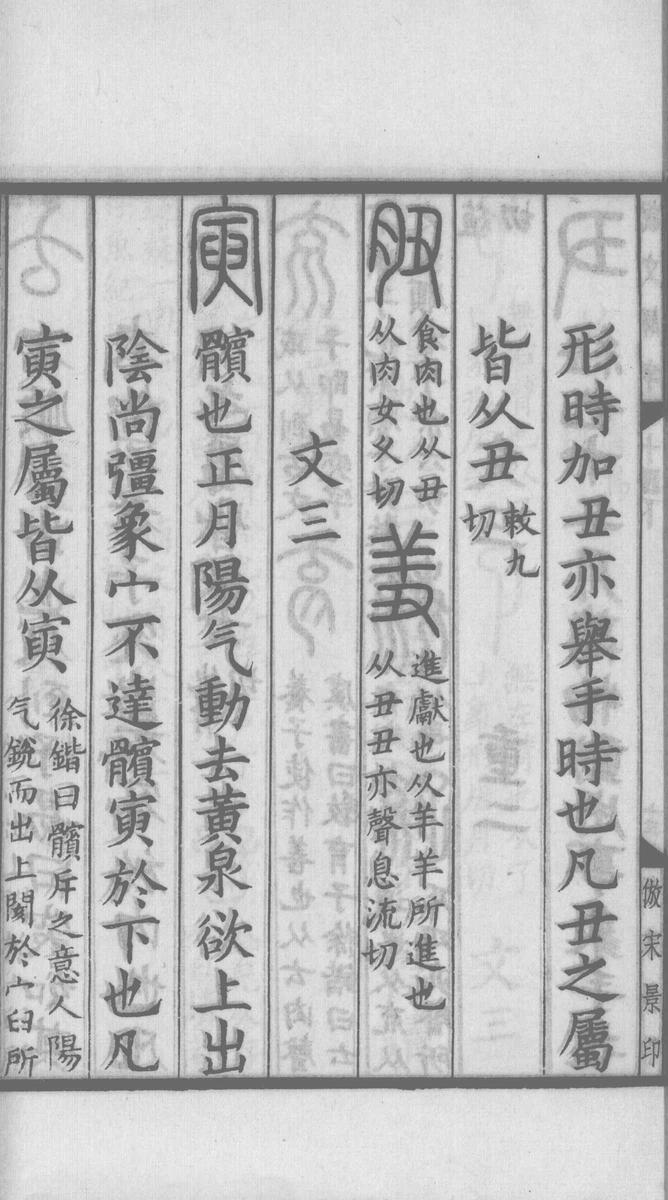 形時加丑亦舉手時也凡丑之屬
皆从丑敕九切
𦙡食肉也从丑从肉女久切 羞進獻也从羊羊所進也从丑丑亦聲息流切
文三
寅髕也正月陽气動去黃泉欲上出
陰尚彊象宀不達髕寅於下也凡
寅之屬皆从寅徐鍇曰髕斥之意人陽气銳而出上閡於宀臼所
倣宋景印